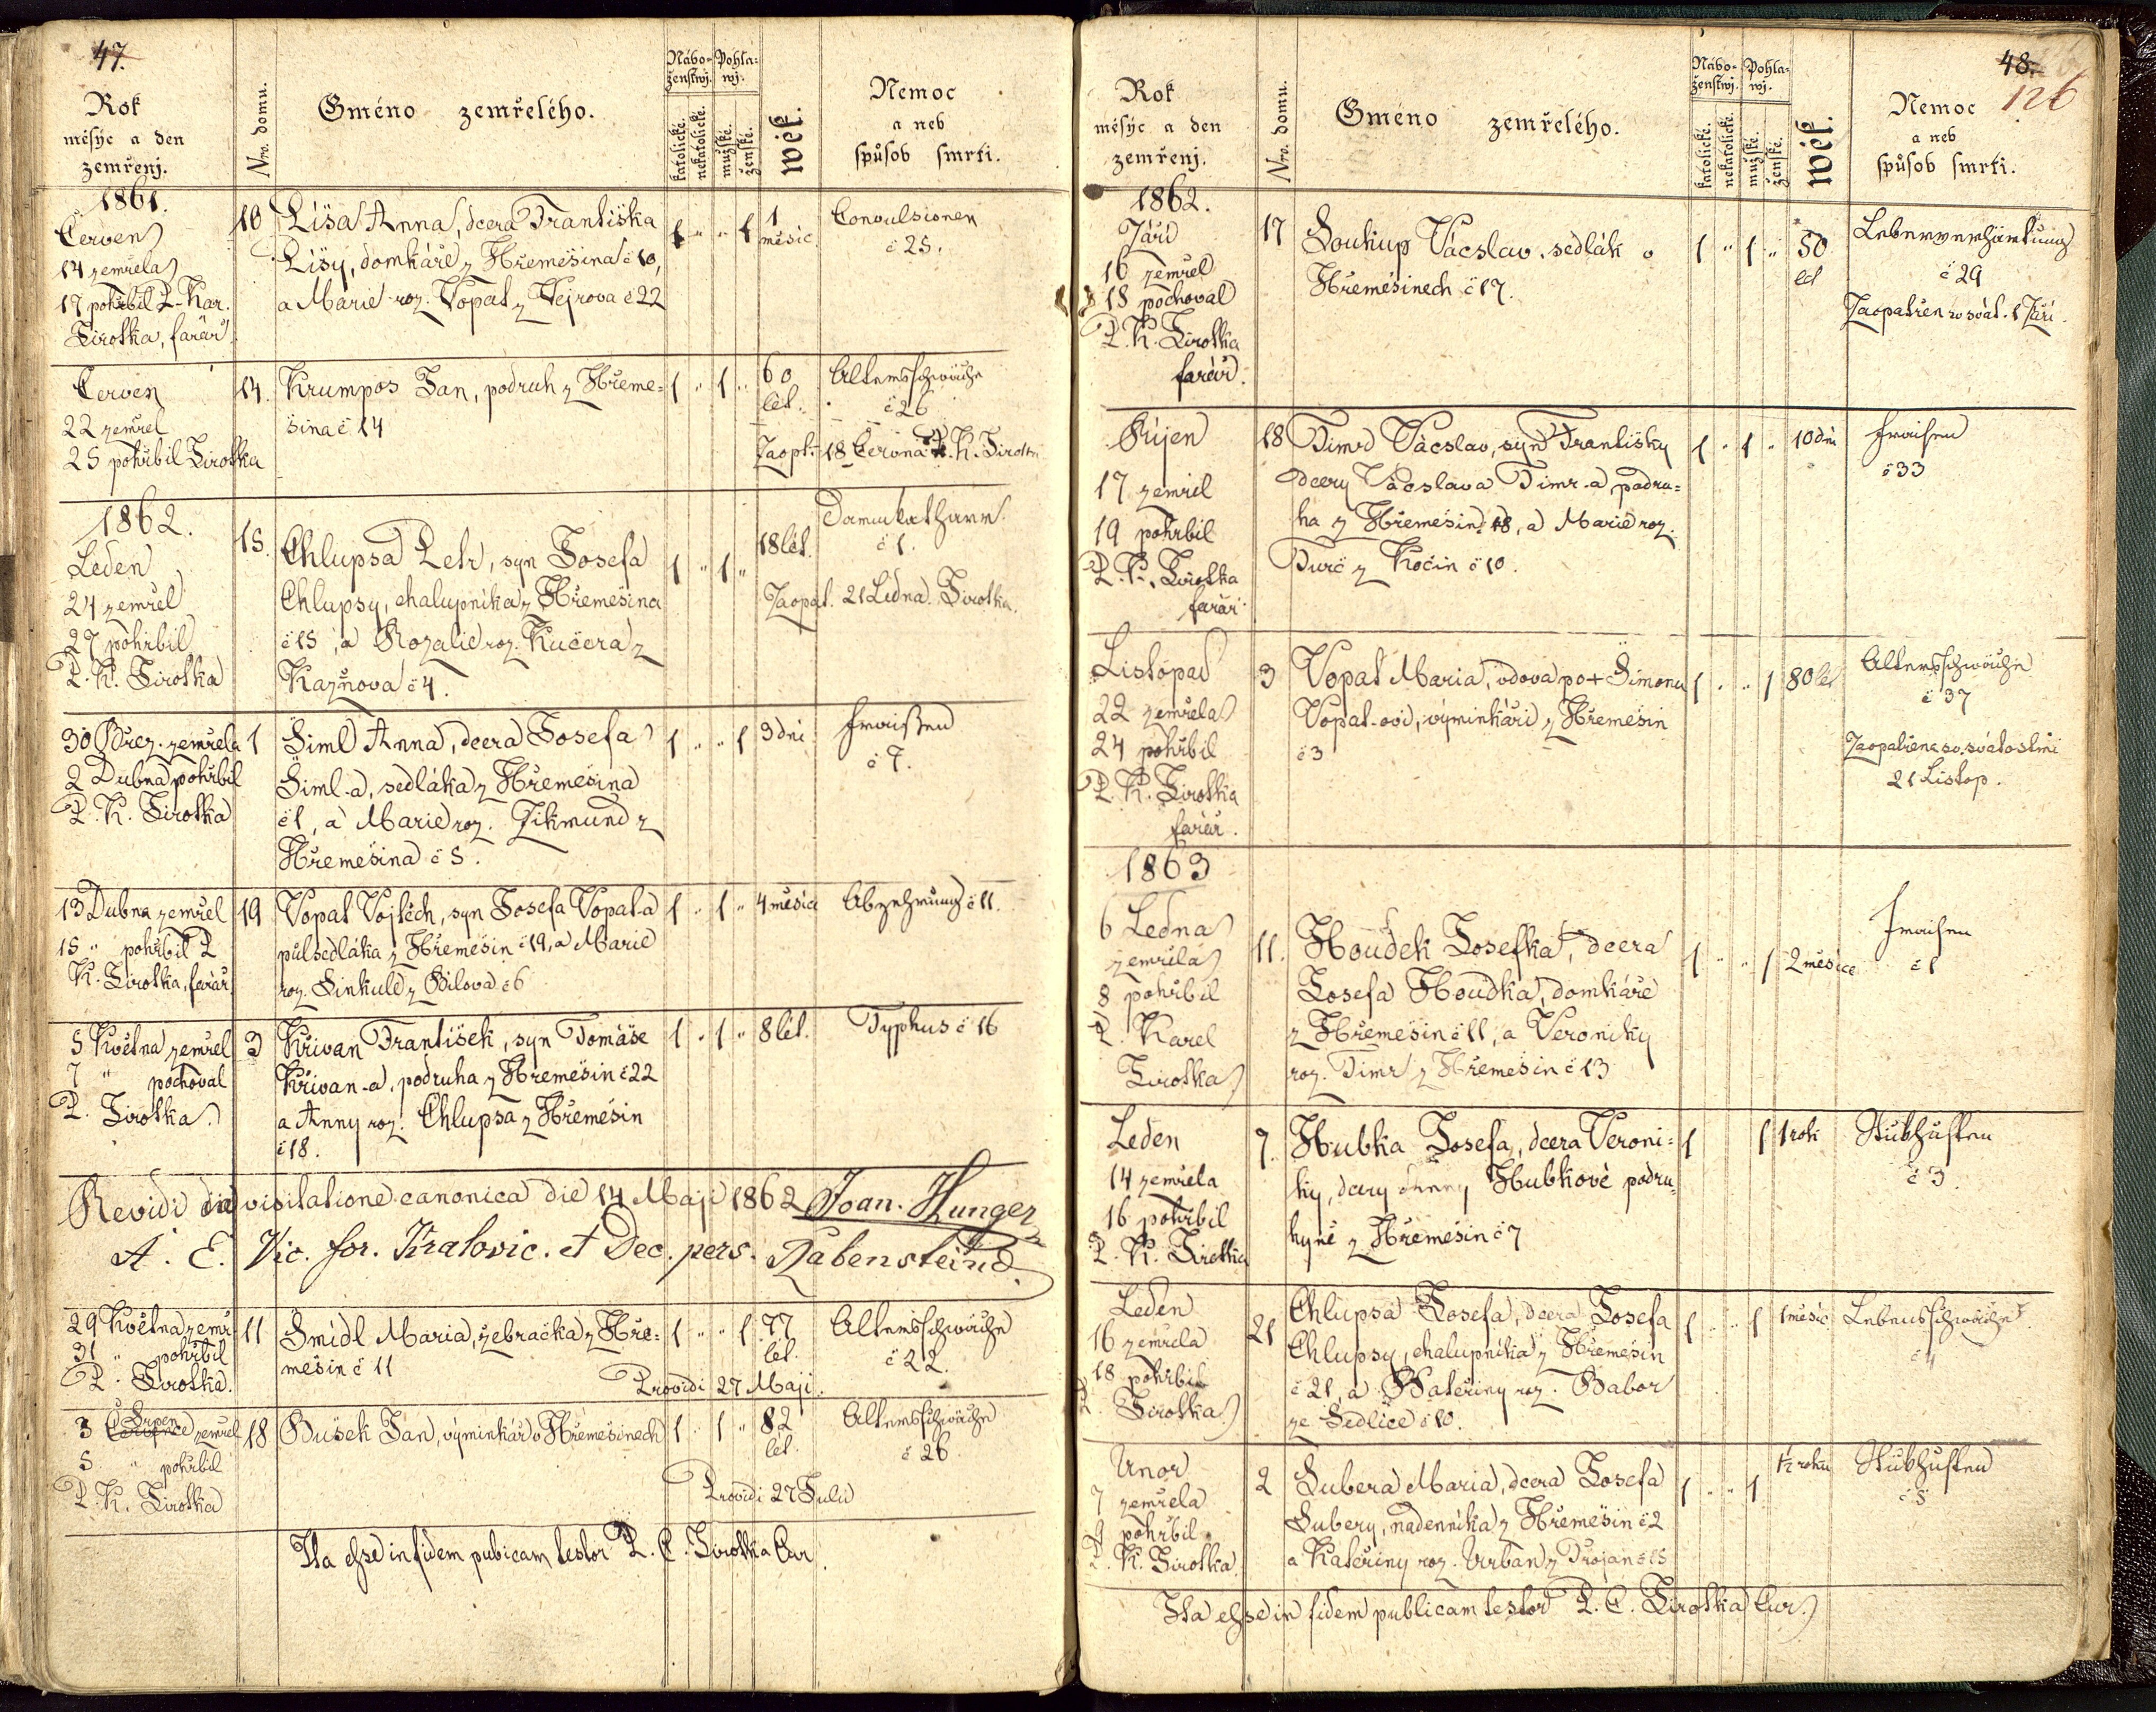 47.
Rok
měsýc a den
zemřenj.
Nro. domu.
Gméno zemřelého.
Nábo-
ženstwj.
Pohla-
wj.
katolické.
nekatolické.
mužské.
ženské.
wěk.
Nemoc
a neb
spůsob smrti.
1861.
Červen
14 zemřela
17 pohřbil P. Kar.
Sirotka, farář
10
Lisa Anna, dcera Františka
Lisy, domkáře z Hřemešina č 10,
a Marie roz. Vopat z Vejrova č 22
1 " " 1
1
měsíc
Convulsionen
č 25.
Červen
22 zemřel
25 pohřbil Sirotka
14.
Krumpos Jan, podruh z Hřeme-
šina č 14
1 " 1 "
60
let.
Altersschwäche
č 26
Zaopt. 18 Června P. K. Sirotka
1862.
Leden
24 zemřel
27 pohřbil
P. K. Sirotka
15.
Chlupsa Petr, syn Josefa
Chlupsy, chalupníka z Hřemešina
č 15, a Rozalie roz. Kučera z
Kazňova č 4.
1 " 1 "
18 let.
Darmkatharr.
č 1.
Zaopat. 21 Ledna. Sirotka.
30 Břez. zemřela
2 Dubna pohřbil
P. K. Sirotka
1
Šiml Anna, dcera Josefa
Šiml-a, sedláka z Hřemešina
č 1, a Marie roz. Zikmund z
Hřemešina č 5.
1 " " 1
3 dni
Fraisen
č 7.
13 Dubna zemřel
15 " pohřbil P
K. Sirotka, farář
19
Vopat Vojtěch, syn Josefa Vopat-a
půlsedláka z Hřemešin č 19, a Marie
roz. Sinkule z Bilova č 6
1 " 1 "
4 měsíce
Abzehrung č 11.
5 Května zemřel
7 " pochoval
P. Sirotka.
3
Křivan František, syn Tomáše
Křivan-a, podruha z Hřemešin č 22
a Anny roz. Chlupsa z Hřemešin
č 18.
1 " 1 "
8 let.
Typhus č 16
Revidi in visitatione canonica die 14 Maji 1862 Joan. Hunger
A. E. Vic. for. Kralovic. et Dec. pers. Rabensteind.
29 Května zemř
31 " pohřbil
P. Sirotka.
11
Šmidl Maria, žebračka z Hře-
mešin č 11
1 " " 1
77
let.
Altersschwäche
č 22.
Providi 27 Maji.
Srpen
3 Července zemřel
5 " pohřbil
P. K. Sirotka
18
Bušek Jan, výminkář v Hřemešinech
1 1 "
82
let.
Altersschwäche
č 26
Providi 27 Julii
Ita esse in fidem pubicam testor P. C. Sirotka Cur.
48.
126
Rok
měsýc a den
zemřenj.
Nro. domu.
Gméno zemřelého.
Nábo-
ženstwj.
Pohla-
wj.
katolické.
nekatolické.
mužské.
ženské.
wěk.
Nemoc
a neb
spůsob smrti.
1862.
Září
16 zemřel
18 pochoval
P. K. Sirotka
farář.
17
Soukup Václav, sedlák v
Hřemešinech č 17.
1 " 1 "
50
let
Leberverhärtung
č 29
Zaopatřen sv. svát. 1 Září.
Říjen
17 zemřel
19 pohřbil
P. K. Sirotka
farář
18
Timr Václav, syn Františky
dcery Václava Timr-a, podru-
ha z Hřemešin 18, a Marie roz.
Durč z Kočin č 10.
1 " 1 "
10 dni
Fraisen
č 33
Listopad
22 zemřela
24 pohřbil
P. K. Sirotka
farář.
3
Vopat Maria, vdova po + Šimonu
Vopat-ovi, výminkáři z Hřemešin
č 3
1 " " 1
80 let
Altersschwäche
č 37
Zaopatřena sv. svátostmi
21 Listop.
1863
6 Ledna
zemřela
8 pohřbil
P. Karel
Sirotka
11.
Houdek Josefka, dcera
Josefa Houdka, domkáře
z Hřemešin č 11, a Veroniky
roz. Timr z Hřemešin č 13
1 " " 1
2 měsíce
Fraisen
č 1
Leden
14 zemřela
16 pohřbil
P. K. Sirotka
7.
Hubka Josefa, dcera Veroni-
ky, dcery Anny Hubkové podru-
hyně z Hřemešin č 7
1 1
1 rok
Stickhusten
č 3.
Leden
16 zemřela
18 pohřbil
P. Sirotka
21
Chlupsa Josefa, dcera Josefa
Chlupsy, chalupníka z Hřemešin
č 21, a Kateřiny roz. Babor
ze Sedlice č 10.
1 " " 1
1 měsíc
Lebensschwäche
č 4
Unor
7 zemřela
9 pohřbil
P. K. Sirotka
2
Subera Maria, dcera Josefa
Subery, nádenníka z Hřemešin č 2
a Kateřiny roz. Urban z Trojan č 15
1 " " 1
1/2 roku
Stickhusten
č 5
Ita esse in fidem publicam testor P. C. Sirotka Cur.